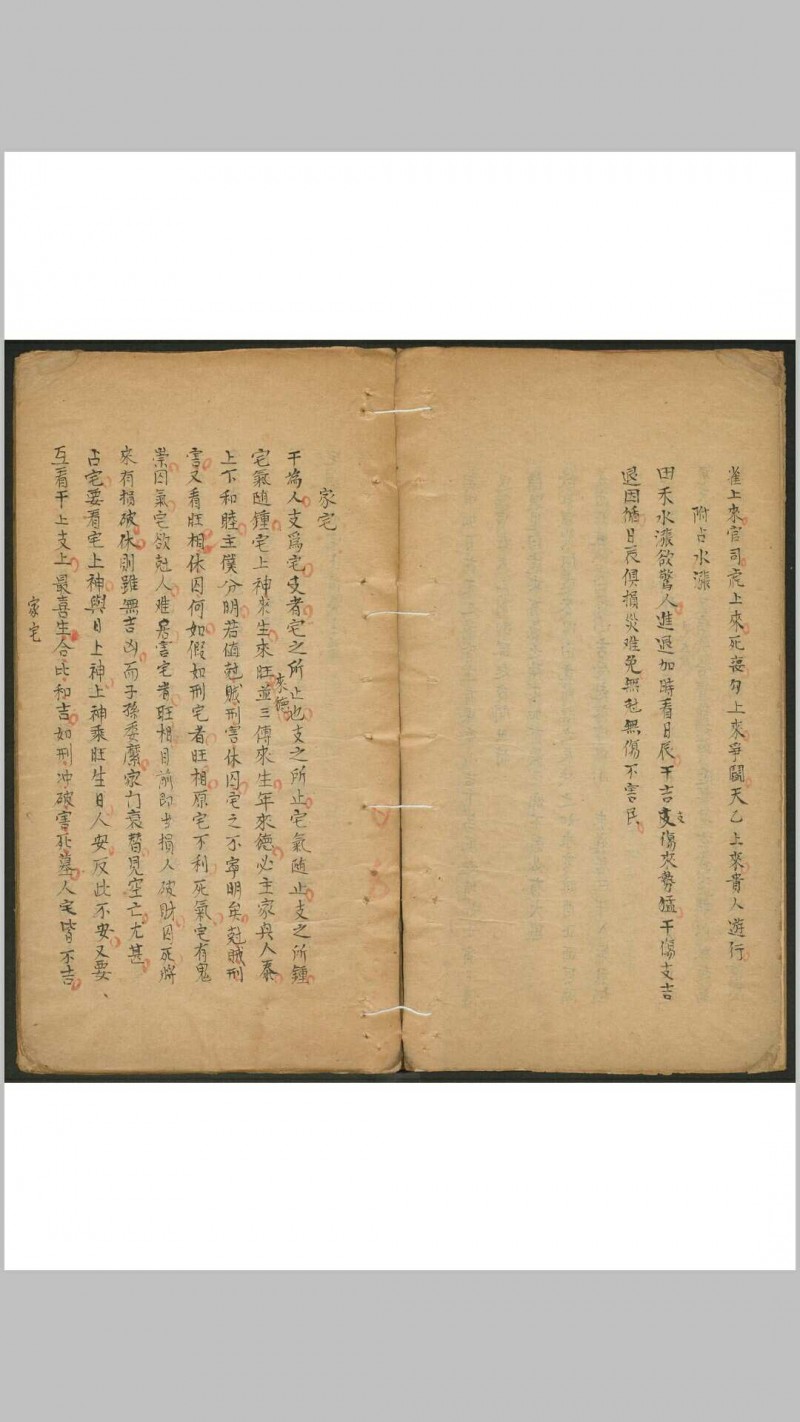 雀上來官司虎上來死喪勾上來爭鬪天乙上來貴人遊行
附占水漲
田禾水漲欲驚人進退加時看日辰干吉支傷來勢猛干傷支吉
退因循日辰俱損災难免無尅無傷不害民
家宅
干為人支爲宅支者宅之所止也支之所止宅氣隨止支之所鍾
宅氣隨鍾宅上神來生來旺並三傳來生年來德必主家興人泰
來德
上下和睦主僕分明若値尅賊刑害休囚宅之不寧明矣尅賊刑
害又看旺相休囚何如假如刑宅者旺相原宅不利死氣宅有鬼
祟囚氣宅欲尅人难居害宅者旺相目前即当損人破財囚死將
來有損破休則雖無吉凶而子孫委靡家门衰替見空亡尤甚
占宅要看宅上神與日上神上神乘旺生日人安反此不安又要
互看干上支上最喜生合比和吉如刑冲破害死墓人宅皆不吉
家宅